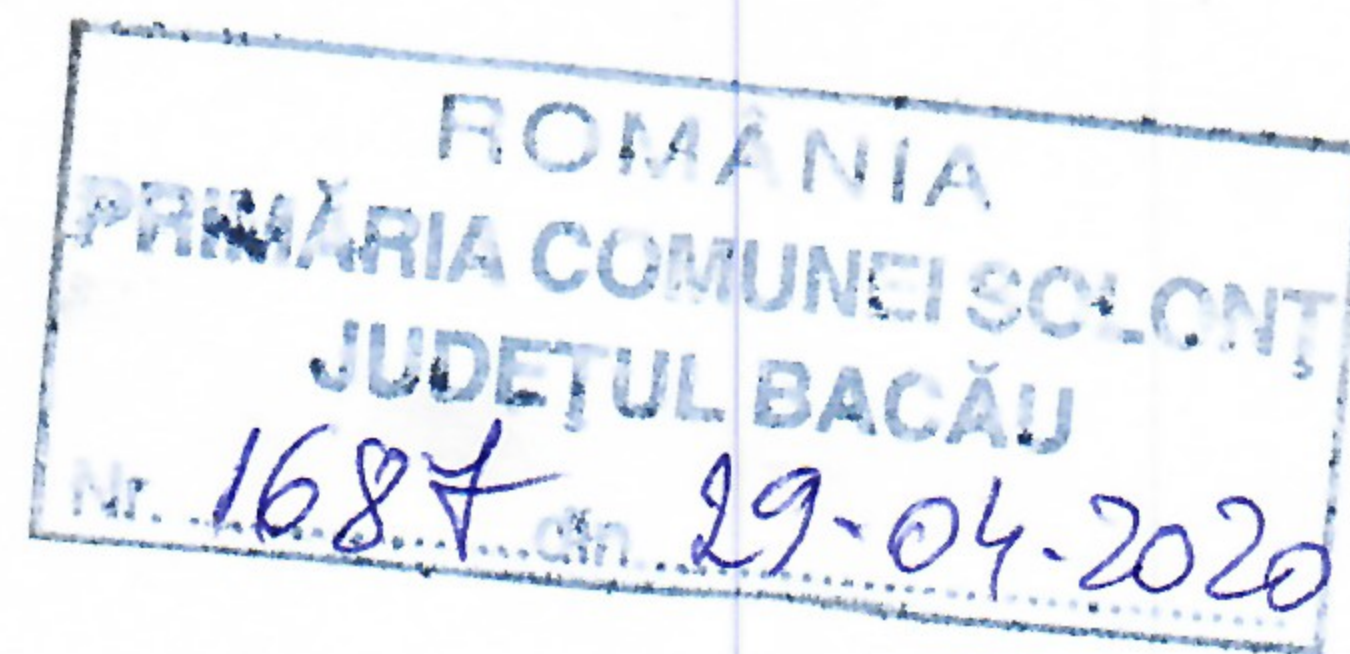 ROMÂNIA
PRIMĂRIA COMUNEI SOLONŢ
JUDEŢUL BACĂU
Nr. 1687 din 29-04-2020